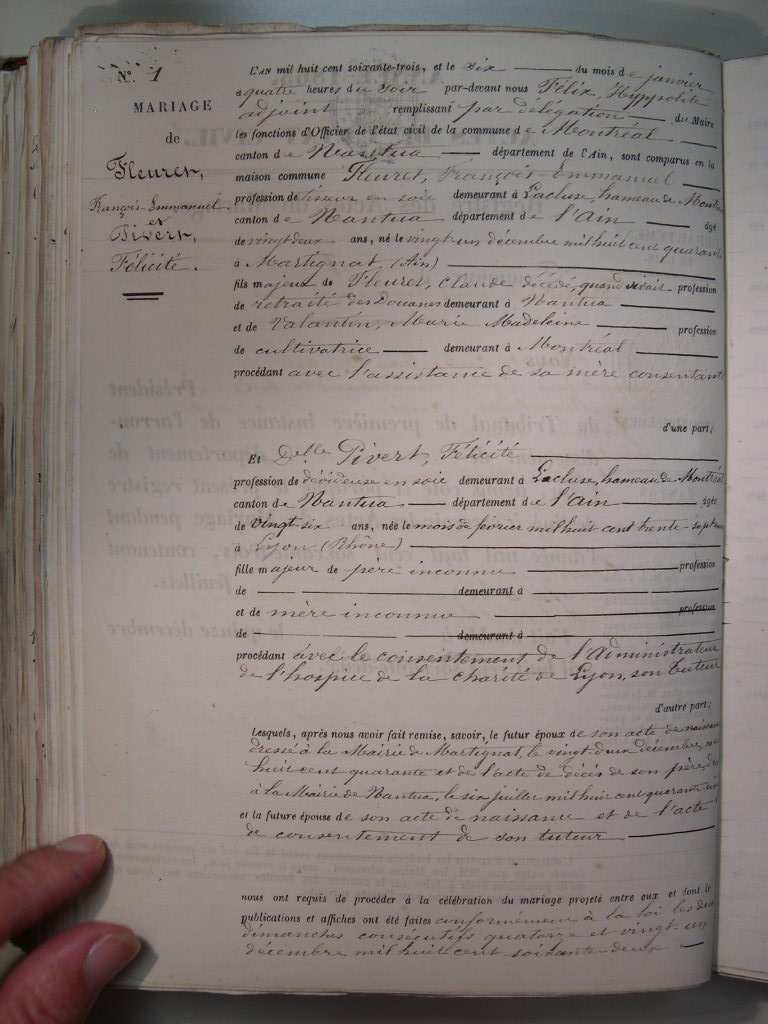 N.º 1
MARIAGE
de
Fleuret,
François-Emmanuel.
et
Pivert,
Félicité.
L'AN mil huit cent soixante-trois, et le six du mois de janvier
à quatre heures du soir par-devant nous Félix, Hyppolite
adjoint remplissant par délégation du Maire
les fonctions d'Officier de l'état civil de la commune de Montréal
canton de Nantua département de l'Ain, sont comparus en la
maison commune Fleuret, François-Emmanuel
profession de tisseur en soie demeurant à Lacluse, hameau de Montréal
canton de Nantua département de l'Ain âgé
de vingt deux ans, né le vingt un décembre mil huit cent quarante
à Martignat, (Ain)
fils majeur de Fleuret, Claude décédé, quand vivait profession
de retraité des Douanes demeurant à Nantua
et de Valantin, Marie Madeleine profession
de cultivatrice demeurant à Montréal
procédant avec l'assistance de sa mère consentante
d'une part;
Et Delle Pivert, Félicité
profession de dévideuse en soie demeurant à Lacluse, hameau de Montréal
canton de Nantua département de l'Ain âgée
de vingt six ans, née le mois de février mil huit cent trente-sept
à Lyon (Rhône)
fille majeur de père inconnu profession
de demeurant à
et de mère inconnue profession
de demeurant à
procédant avec le consentement de l'Administrateur
de l'hospice de la charité de Lyon, son tuteur
d'autre part;
Lesquels, après nous avoir fait remise, savoir, le futur époux de son acte de naissance
dressé à la Mairie de Martignat, le vingt deux décembre, mil
huit cent quarante et de l'acte de décès de son père,
à la Mairie de Nantua, le six juillet mil huit cent quarante
et la future épouse de son acte de naissance et de l'acte
de consentement de son tuteur
nous ont requis de procéder à la célébration du mariage projeté entre eux et dont les
publications et affiches ont été faites conformément à la loi les deux
dimanches consécutifs quatorze et vingt un
décembre mil huit cent soixante deux